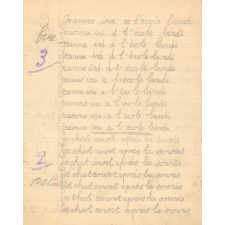 Jeanne ira a l'école lundi
Jeanne ira a l'école lundi
Jeanne ira a l'école lundi
Jeanne ira a l'école lundi
Jeanne ira a l'école lundi
Jeanne ira a l'école lundi
Jeanne ira a l'école lundi
Jeanne ira a l'école lundi
Jeanne ira a l'école lundi
3
Le chat court après la souris
Le chat court après la souris
Le chat court après la souris
2
Le chat court après la souris
Le chat court après la souris
Le chat court après la souris
Le chat court après la souris